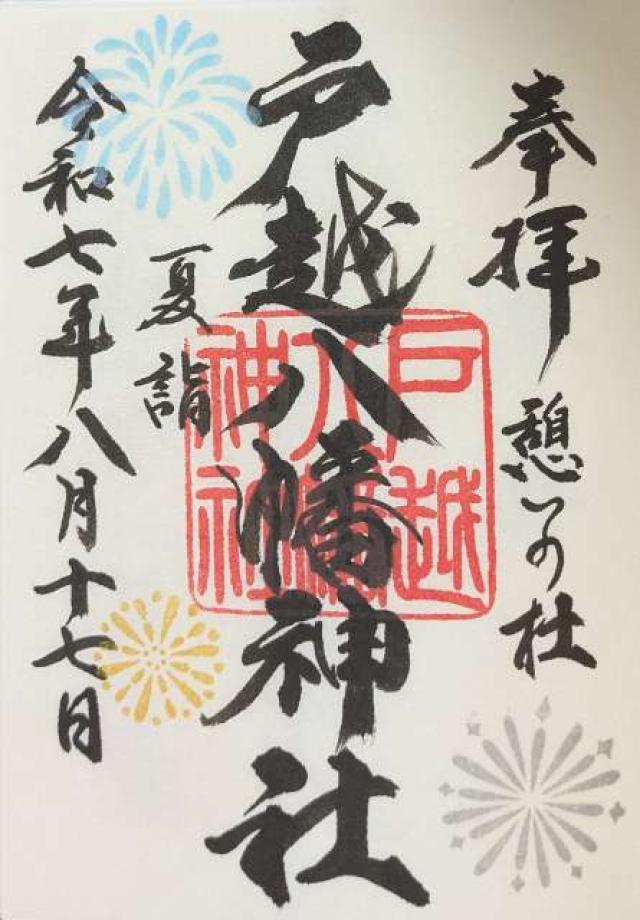 奉拝 憩いの杜
戸越八幡神社
戸越
八幡
神社
夏詣
令和七年八月十七日